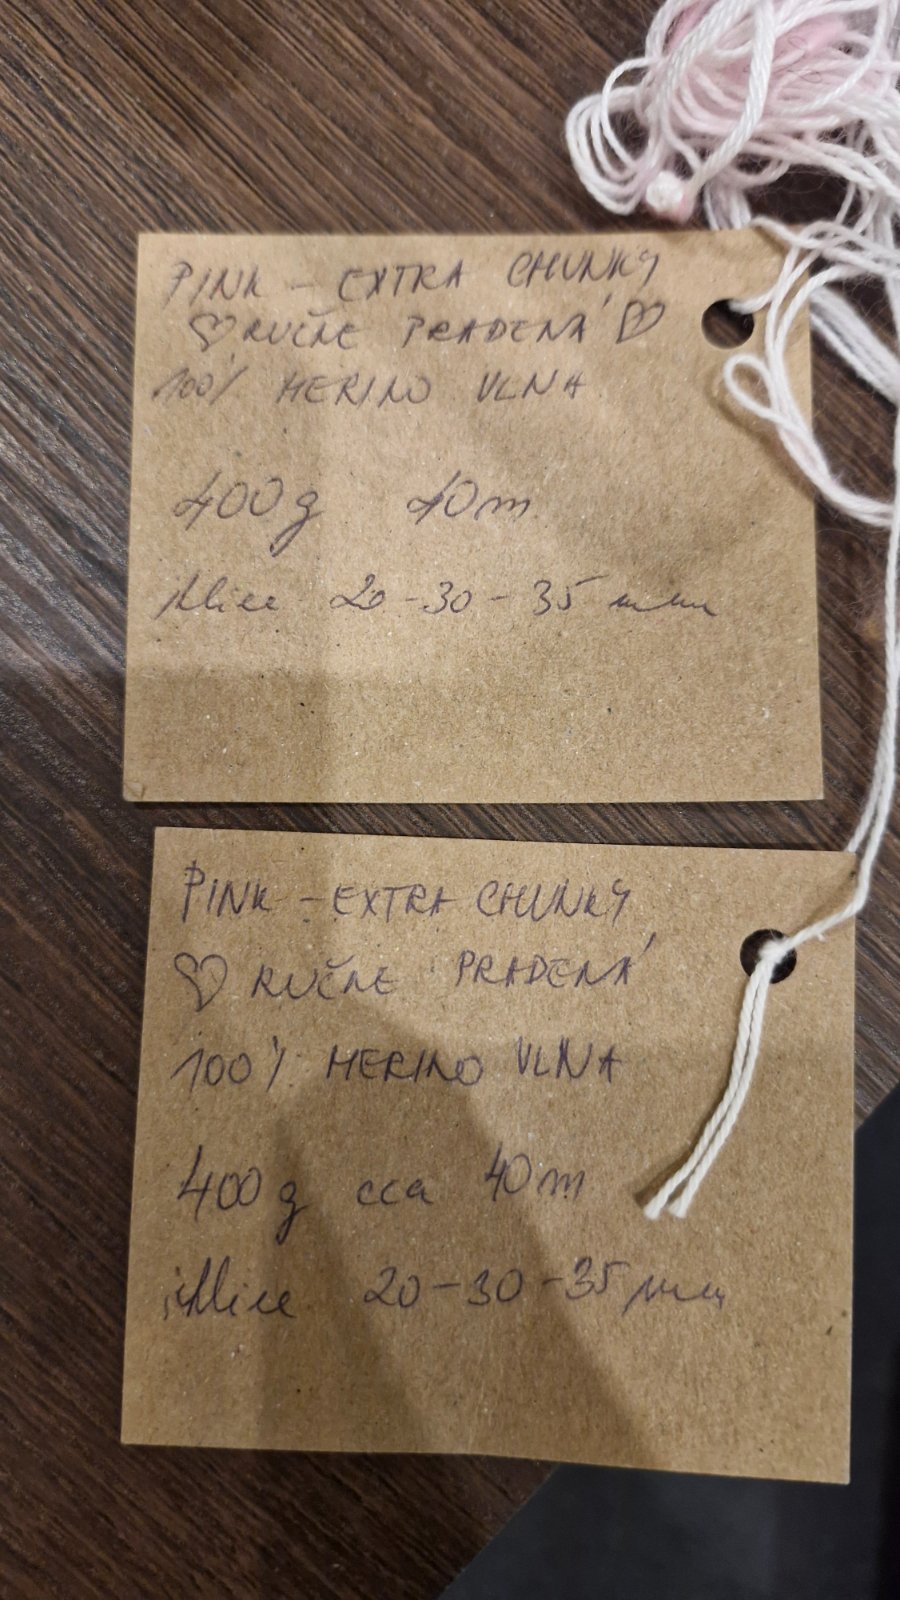 PINK - EXTRA CHUNKY
♡ RUČNE PRADENÁ ♡
100% MERINO VLNA
400g 40m
ihlice 20-30-35 mm
PINK - EXTRA CHUNKY
♡ RUČNE PRADENÁ
100% MERINO VLNA
400g cca 40m
ihlice 20-30-35 mm